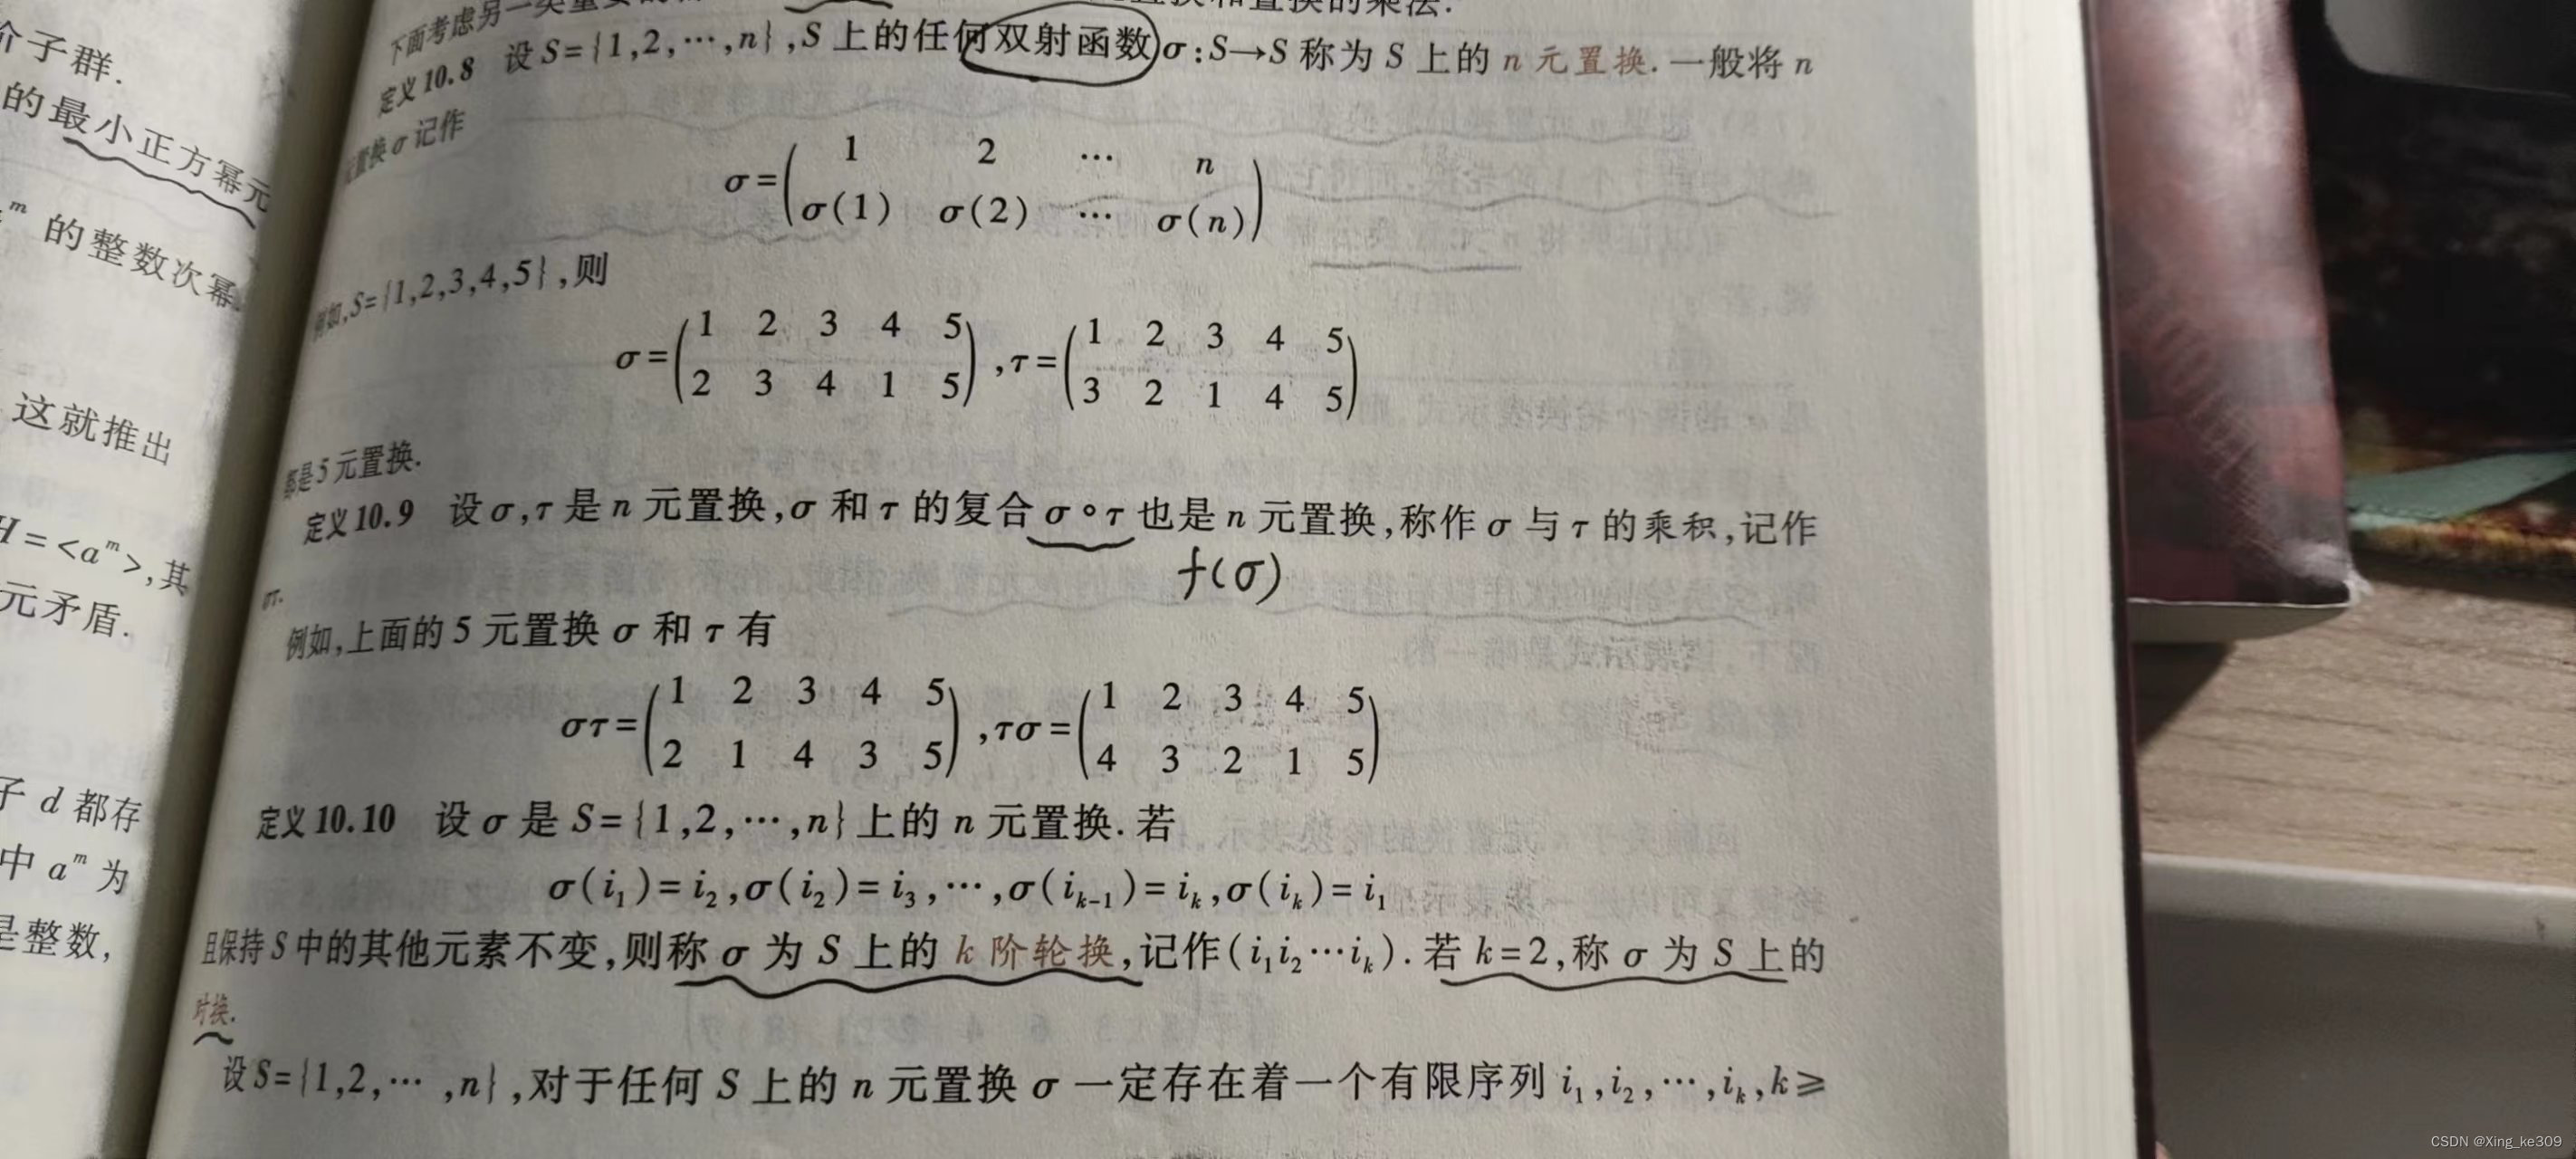 介子群.
的最小正方幂元
m 的整数次幂
这就推出
H=<aᵐ>,其
元矛盾.
子 d 都存
中 aᵐ 为
是整数,
下面考虑另一类重要的 置换和置换的乘法.
定义10.8 设 S={1,2,⋯,n},S 上的任何双射函数σ:S→S 称为 S 上的 n 元置换. 一般将 n
元置换 σ 记作
σ=(1 2 ⋯ n
σ(1) σ(2) ⋯ σ(n))
例如,S={1,2,3,4,5},则
σ=(1 2 3 4 5
2 3 4 1 5),τ=(1 2 3 4 5
3 2 1 4 5)
都是5元置换.
定义10.9 设σ,τ是n元置换,σ和τ的复合σ∘τ也是n元置换,称作σ与τ的乘积,记作
f(σ)
στ.
例如,上面的5元置换σ和τ有
στ=(1 2 3 4 5
2 1 4 3 5),τσ=(1 2 3 4 5
4 3 2 1 5)
定义10.10 设σ是 S={1,2,⋯,n}上的 n 元置换. 若
σ(i₁)=i₂,σ(i₂)=i₃,⋯,σ(iₖ₋₁)=iₖ,σ(iₖ)=i₁
且保持S中的其他元素不变,则称σ为S上的k阶轮换,记作(i₁i₂⋯iₖ). 若k=2,称σ为S上的
对换.
设S={1,2,⋯,n},对于任何S上的n元置换σ一定存在着一个有限序列i₁,i₂,⋯,iₖ,k≥
CSDN @Xing_ke309